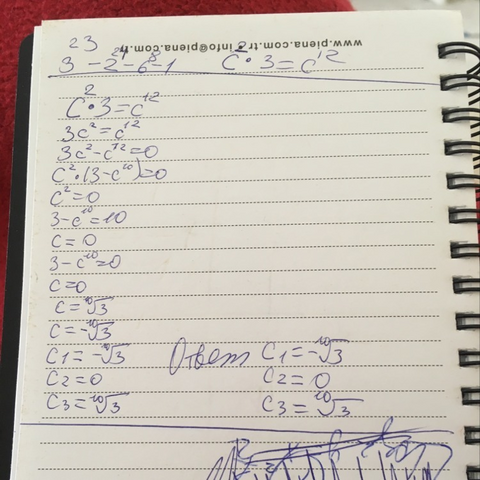 www.piena.com.tr info@piena.com.tr
23
3 - 2²⁴ - 6⁸ - 1 C² · 3 = C¹²
C² · 3 = C¹²
3c² = c¹²
3c² - c¹² = 0
C² · (3 - c¹⁰) = 0
C² = 0
3 - c¹⁰ = 10
C = 0
3 - c¹⁰ = 0
C = 0
C = ¹⁰√3
C = -¹⁰√3
C1 = -¹⁰√3 Ответ C1 = -¹⁰√3
C2 = 0 C2 = 0
C3 = ¹⁰√3 C3 = ¹⁰√3